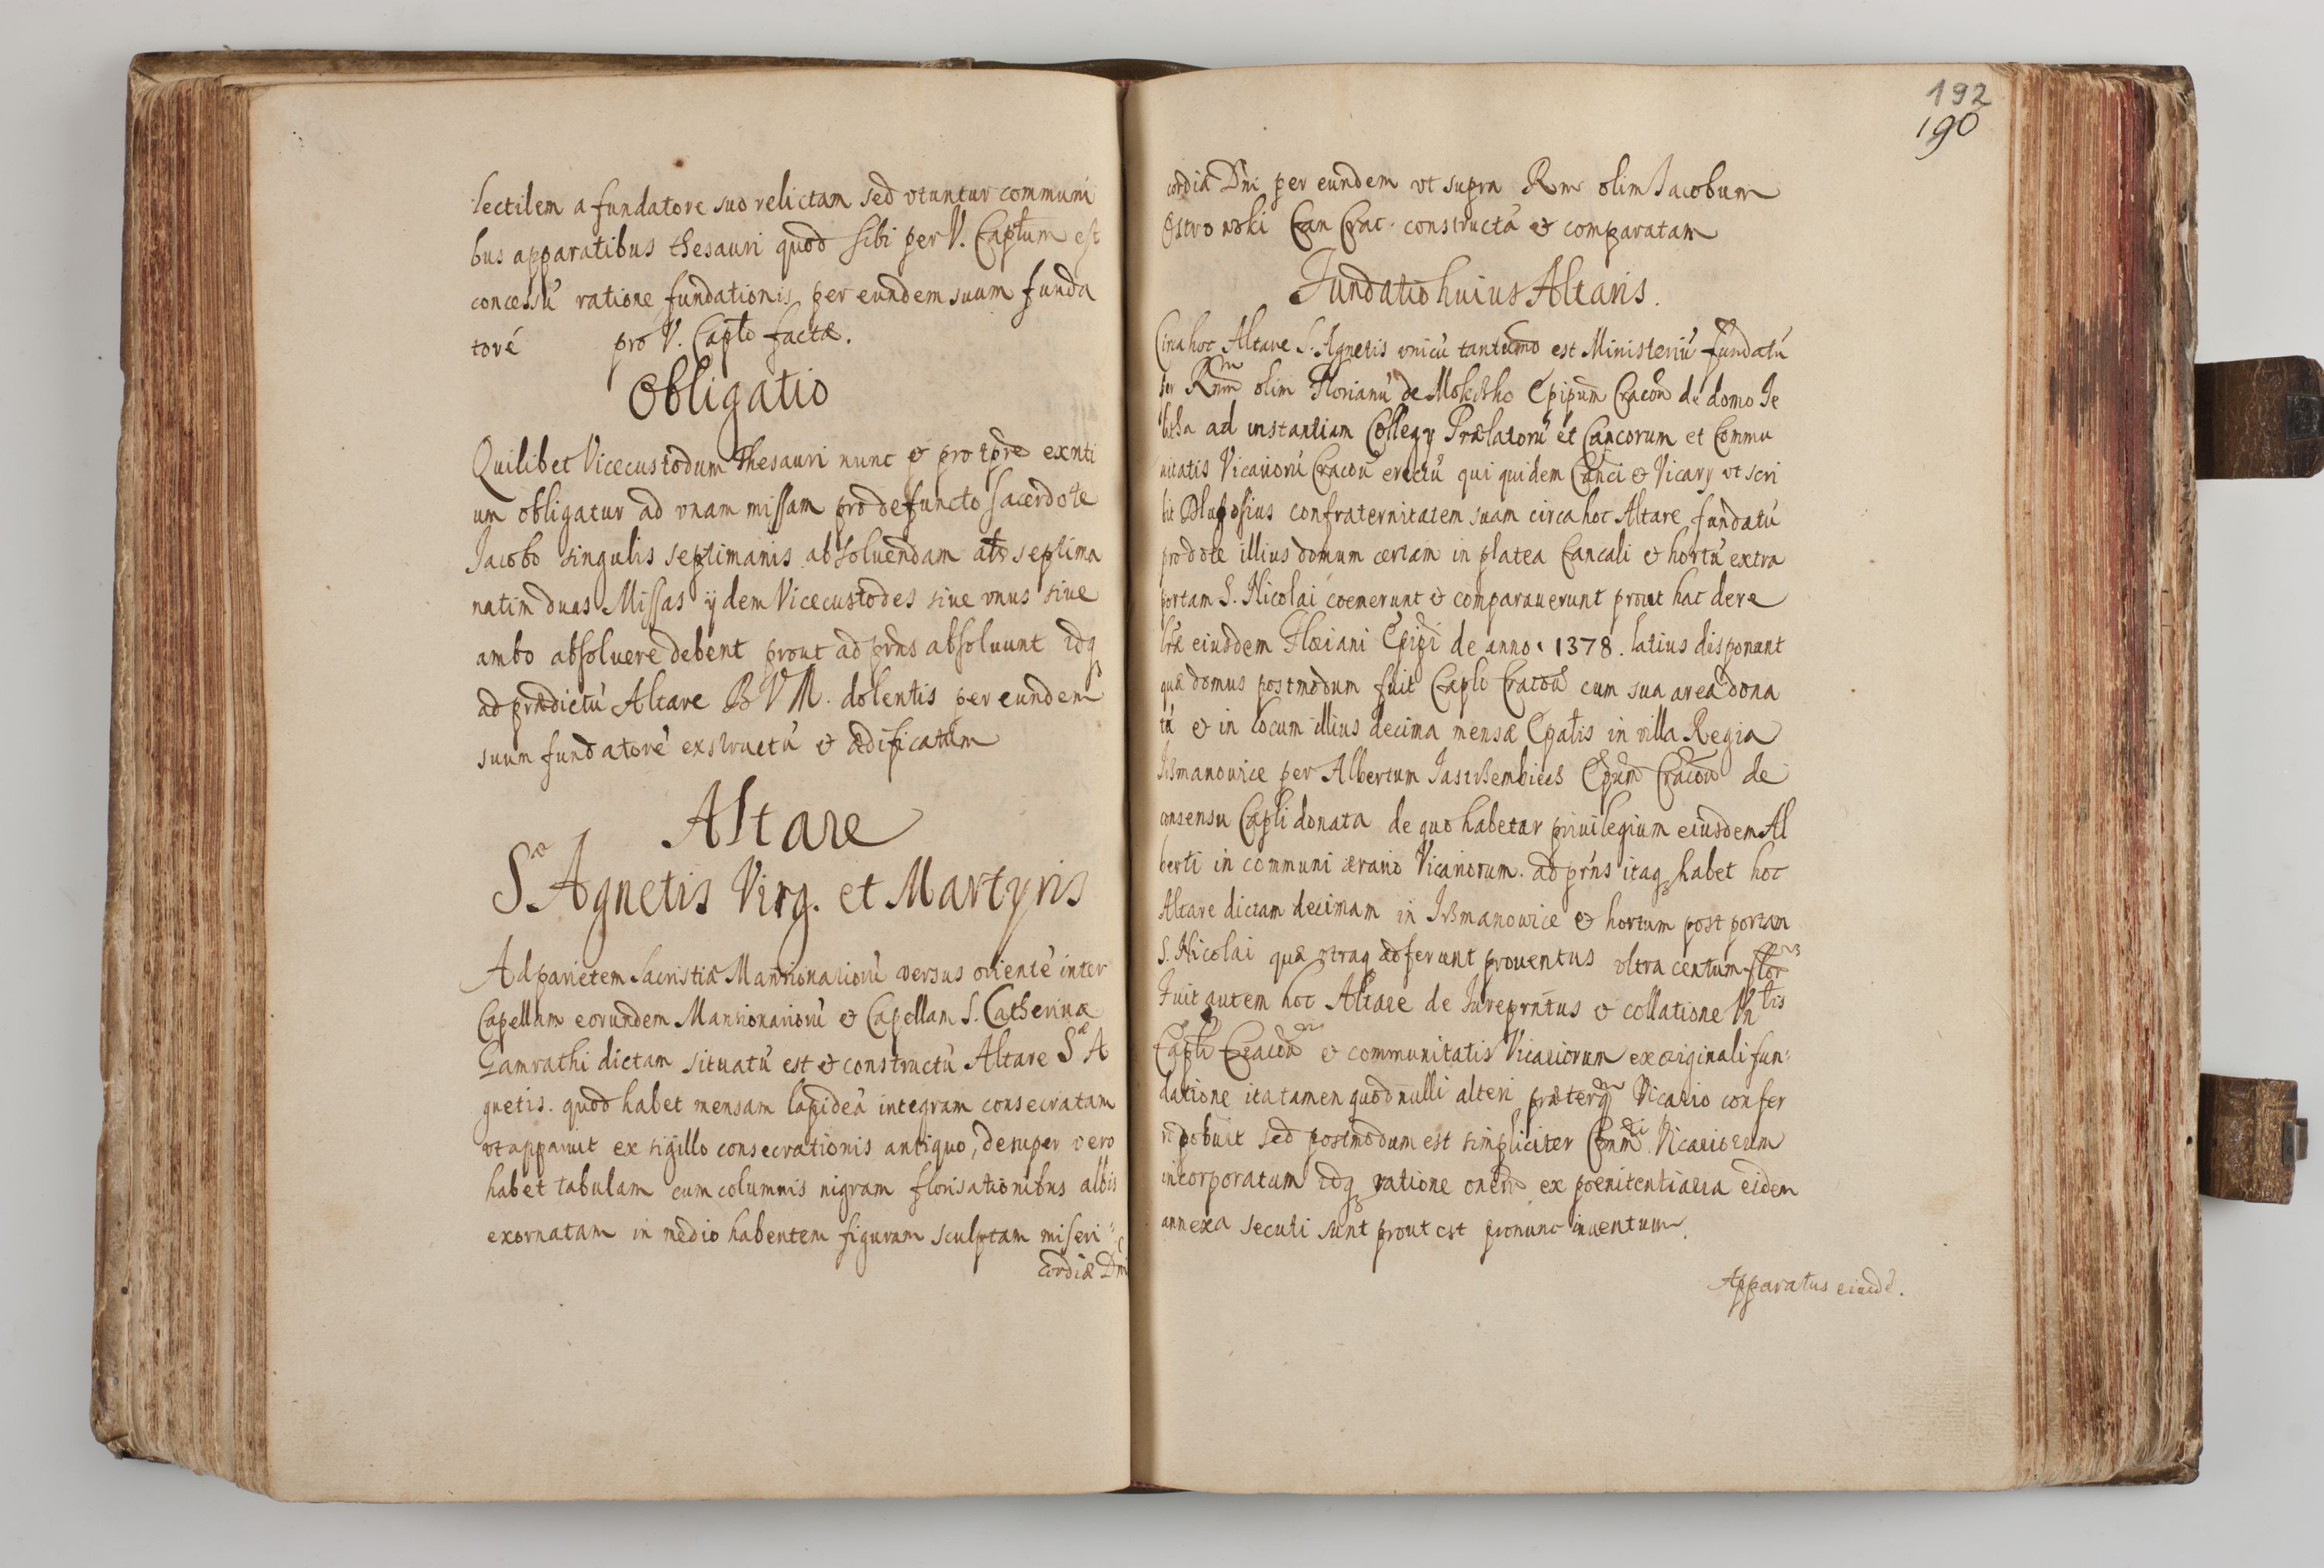 lectilem a fundatore suo relictam sed utuntur communi
bus apparatibus thesauri quod sibi per V. Captum est
concessū ratione fundationis per eundem suum funda
torē pro V. Capto factæ.
Obligatio
Quilibet Vicecustodum thesauri nunc et pro tpre exnti
um obligatur ad unam missam pro defuncto sacerdote
Jacobo singulis septimanis absoluendam als septima
natim duas Missas ijdem Vicecustodes siue unus siue
ambo absoluere debent prout ad prñs absoluunt idq
ad prædictū Altare B V M. dolentis per eundem
suum fundatorē exstructū et ædificatum
Altare
Sæ Agnetis Virg. et Martyris
Ad parietem Sacristiæ Mansionariorū versus orientē inter
Capellam eorundem Mansionariorū et Capellam S. Catherinæ
Gamrathi dictam situatū est et constructū Altare Sæ A
gnetis. quod habet mensam lapideā integram consecratam
ut apparuit ex sigillo consecrationis antiquo, desuper vero
habet tabulam cum columnis nigram florisationibus albis
exornatam in medio habentem figuram sculptam miseri-
cordiæ Dni
192
190
cordia Dñi per eundem ut supra Rm olim Jacobum
Ostrowski Can Crac. constructā et comparatam
Fundatio huius Altaris.
Circa hoc Altare S. Agnetis unicū tantumo est Ministeriū fundatū
per Rmm olim Florianū de Mokrsko Epipum Cracoū de domo Je
litha ad instantiam Collegy Prælatorū et Cancorum et Commu
nitatis Vicariorū Cracoū erectū qui quidem Canci et Vicary ut scri
bit Dlugosius confraternitatem suam circa hoc Altare fundatū
pro dote illius domum certam in platea Cancali et hortū extra
portam S. Nicolai coemerunt et comparauerunt prout hac de re
lræ eiusdem Floriani Epipi de anno 1378. latius disponunt
quæ domus postmodum fuit Caplo Cracoū cum sua area dona
ta et in locum illius decima mensæ Epatis in villa Regia
Irzmanowice per Albertum Jastrzembiecs Epum Cracoū de
consensu Capli donata de quo habetur priuilegium eiusdem Al
berti in communi ærario Vicariorum. ad prñs itaq habet hoc
Altare dictam decimam in Irzmanowice et hortum post portam
S. Nicolai quæ utraq adferunt prouentus ultra centum flor
Fuit autem hoc Altare de Jureprntus et collatione Vntis
Capli Cracoū et communitatis Vicariorum ex originali fun-
datione ita tamen quod nulli alteri præterq Vicario confer
ri potuit sed postmodum est simpliciter Commti Vicariorum
incorporatum idq ratione oneris ex poenitentiaria eidem
annexa secuti sunt prout est pronunc inuentum.
Apparatus eiusdē.